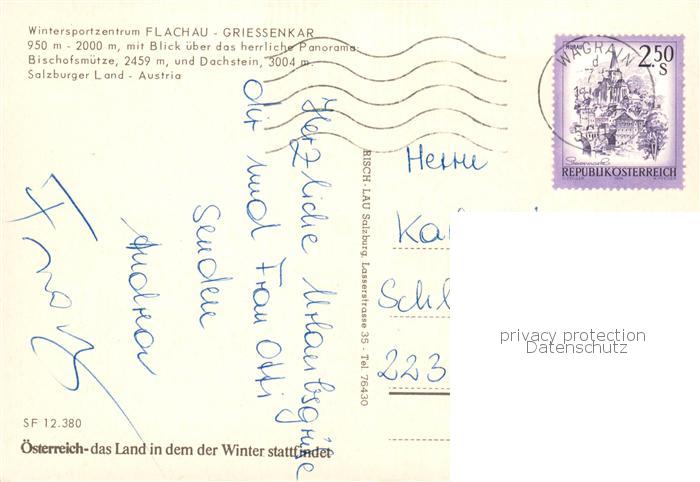 Wintersportzentrum FLACHAU - GRIESSENKAR
950 m - 2000 m, mit Blick über das herrliche Panorama:
Bischofsmütze, 2459 m, und Dachstein, 3004 m.
Salzburger Land - Austria
Herzliche Urlaubsgrüße
dir und Frau Otti
senden
Andrea
Franz
SF 12.380
Österreich-das Land in dem der Winter stattfindet
RISCH-LAU Salzburg, Lasserstrasse 35 - Tel. 76430
WAGRAIN
MURAU
2.50
S
Steiermark
REPUBLIK ÖSTERREICH
Herrn
Ka
Schl
223
privacy protection
Datenschutz